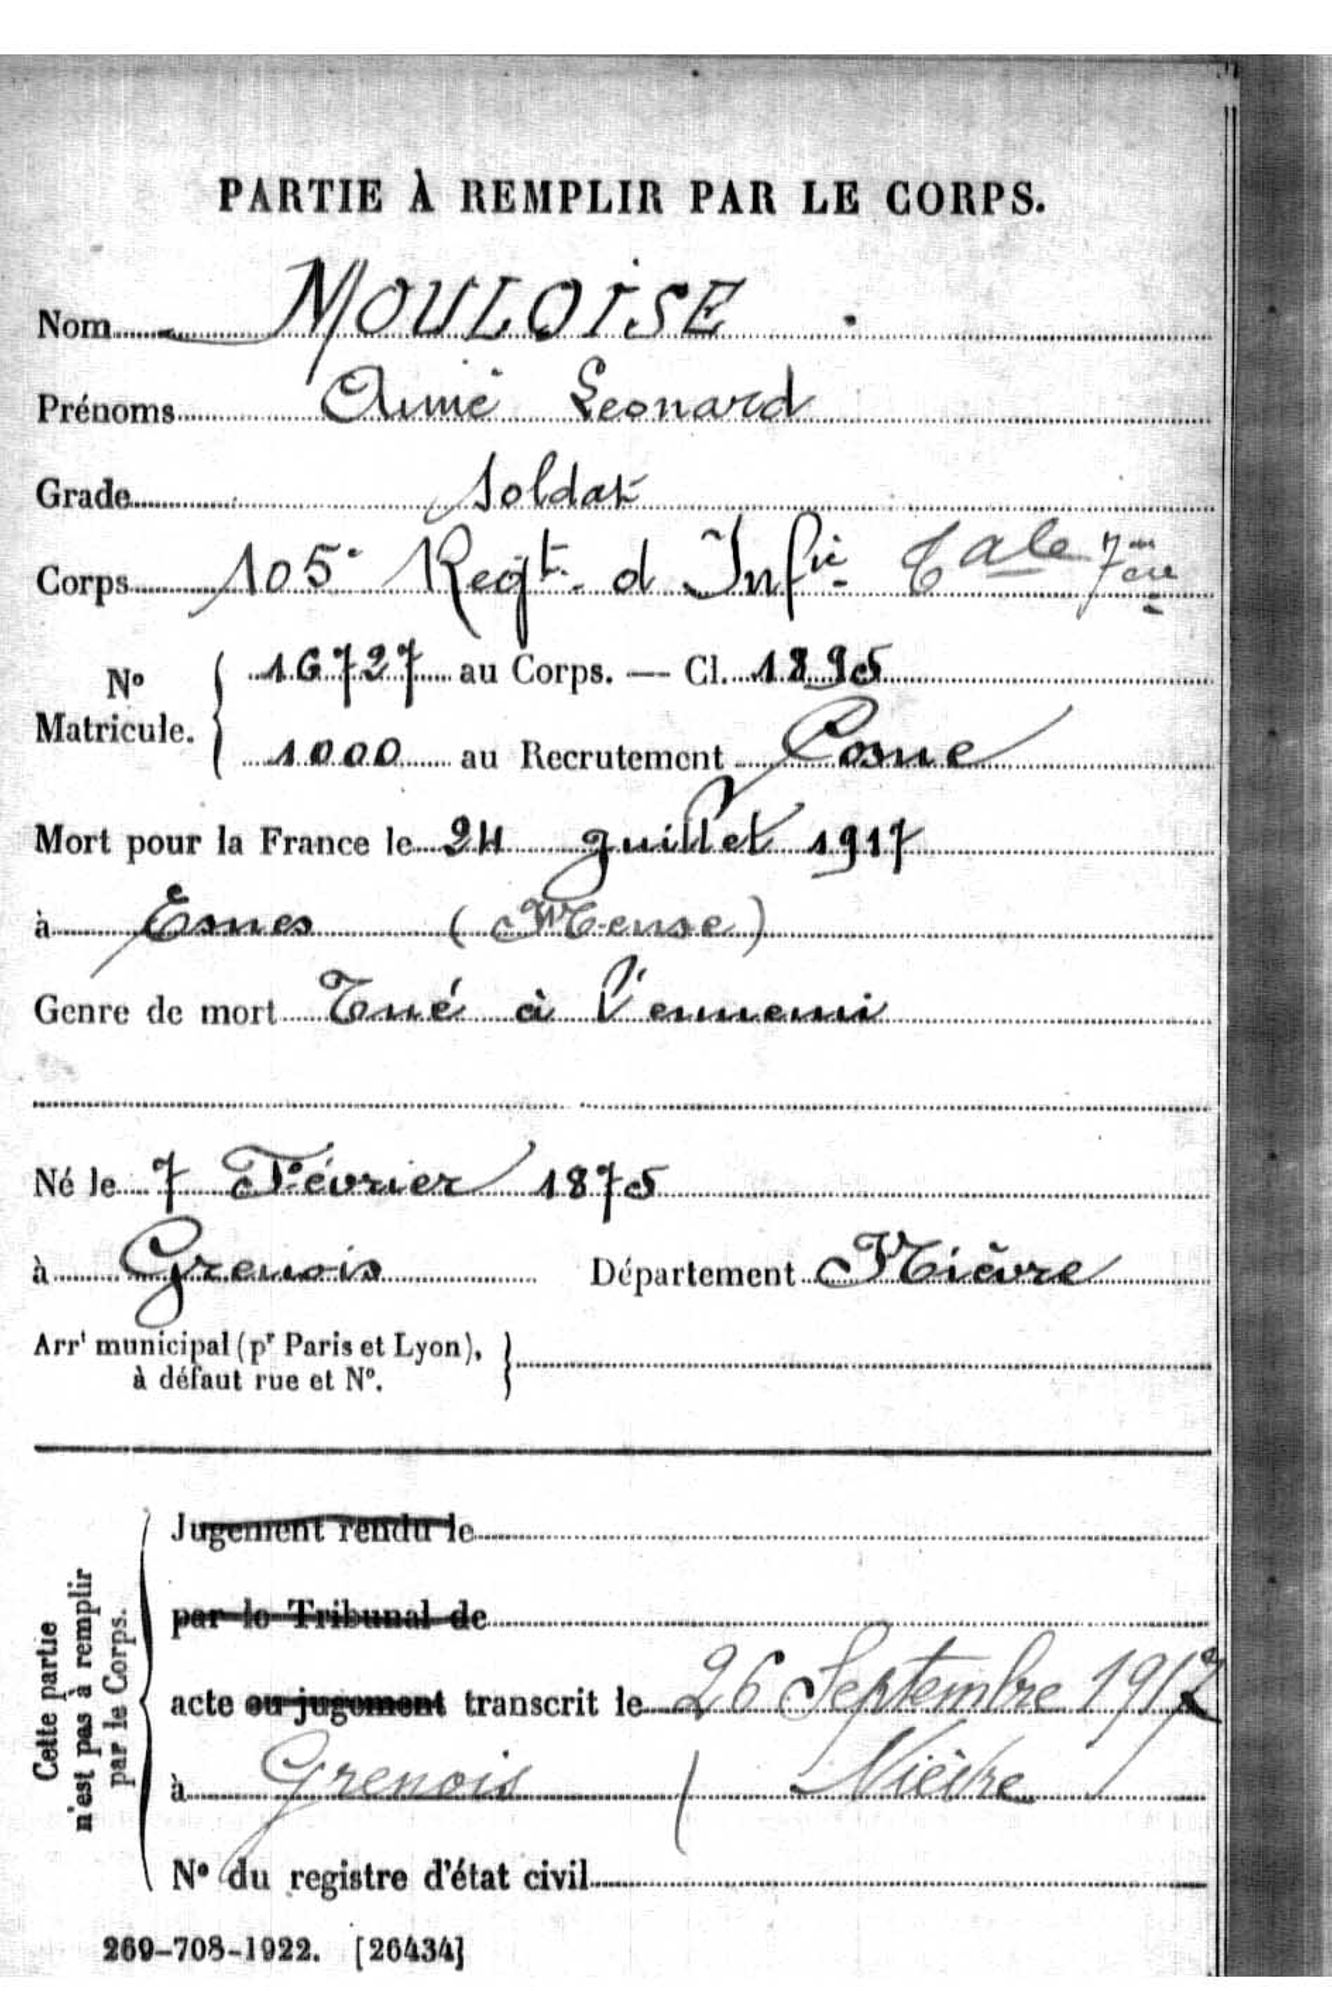 PARTIE À REMPLIR PAR LE CORPS.
Nom MOULOISE
Prénoms Aimé Leonard
Grade Soldat
Corps 105e Regt. d Infie
N° Matricule. 16727 au Corps. — Cl. 1895
1000 au Recrutement Cosne
Mort pour la France le 24 Juillet 1917
à Esnes (Meuse)
Genre de mort Tué à l'ennemi
Né le 7 Février 1875
à Grenois Département Nièvre
Arrt municipal (pr Paris et Lyon),
à défaut rue et N°.
Cette partie
n'est pas à remplir
par le Corps.
Jugement rendu le
par le Tribunal de
acte ou jugement transcrit le 26 Septembre 1917
à Grenois (Nièvre)
N° du registre d'état civil
269-708-1922. [26434]